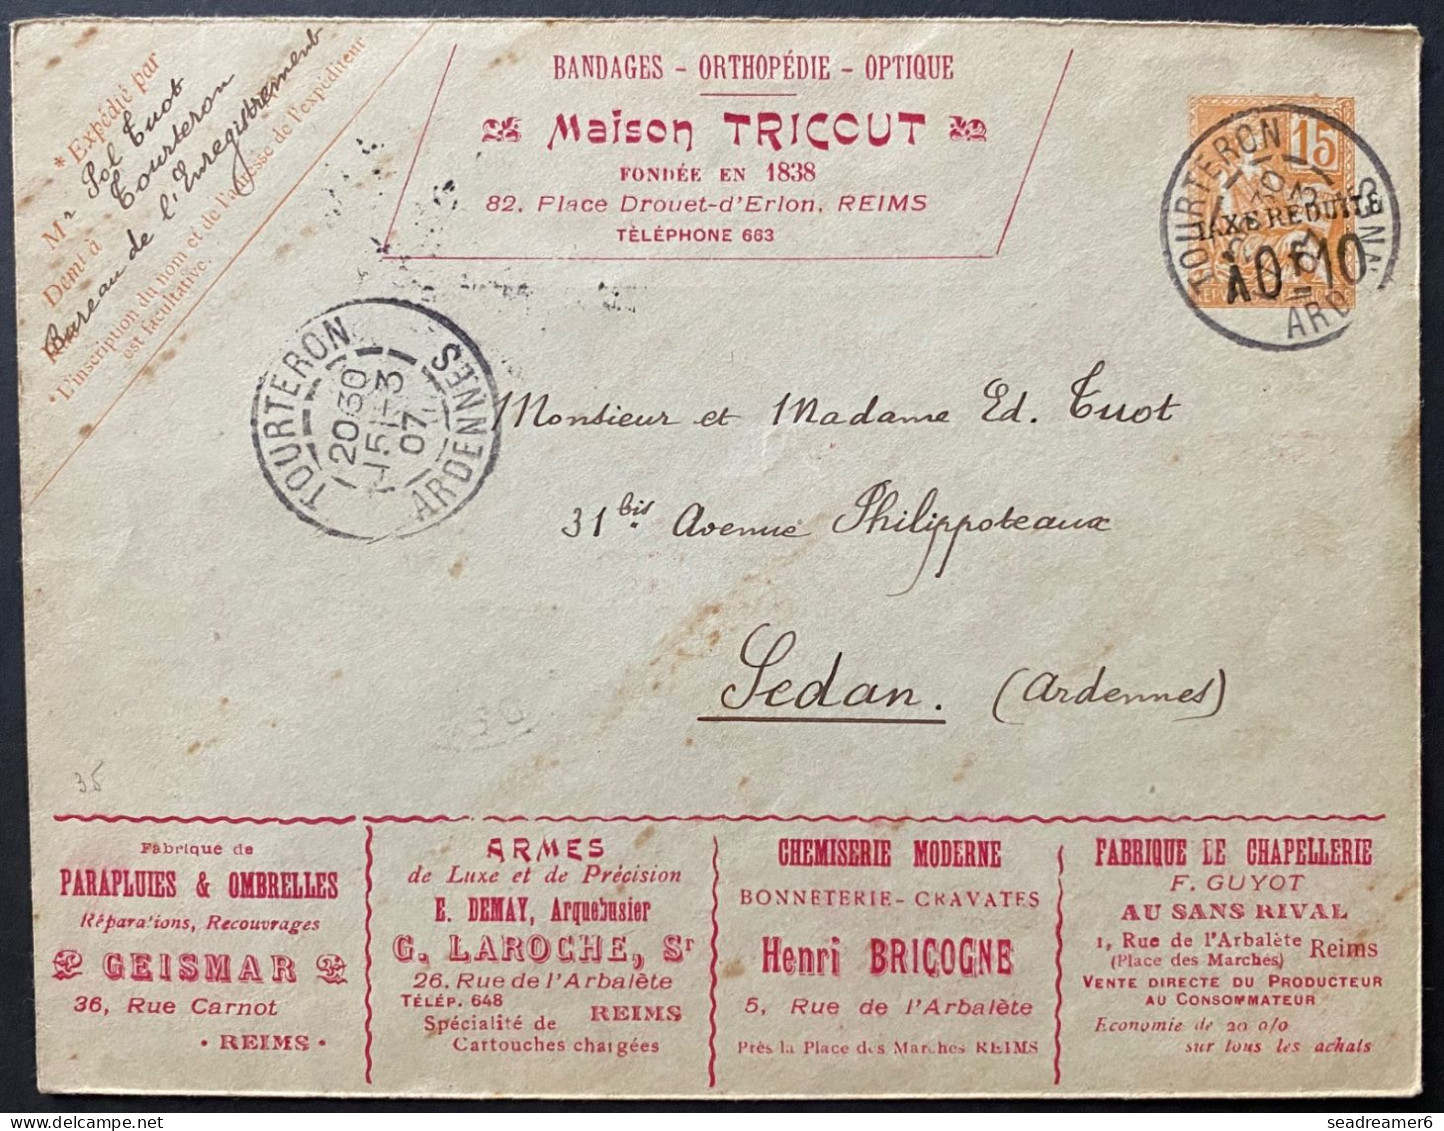 * Expédié par
Mr Sol Tuot
Domt à Tourteron
Bureau de l'Enregistrement
*L'inscription du nom et de l'adresse de l'expéditeur
est facultative.
BANDAGES - ORTHOPÉDIE - OPTIQUE
Maison TRICOUT
FONDÉE EN 1838
82, Place Drouet-d'Erlon, REIMS
TÈLÉPHONE 663
15
TAXE RÉDUITE
A 0f 10
TOURTERON
ARDENNES
TOURTERON
20 30
15 - 3
07
ARDENNES
Monsieur et Madame Ed. Tuot
31 bis Avenue Philippoteaux
Sedan. (Ardennes)
35
Fabrique de
PARAPLUIES & OMBRELLES
Réparations, Recouvrages
GEISMAR
36, Rue Carnot
• REIMS •
ARMES
de Luxe et de Précision
E. DEMAY, Arquebusier
G. LAROCHE, Sr
26, Rue de l'Arbalète
TÉLÉP. 648
REIMS
Spécialité de
Cartouches chargées
CHEMISERIE MODERNE
BONNETERIE - CRAVATES
Henri BRICOGNE
5, Rue de l'Arbalète
Près la Place des Marches REIMS
FABRIQUE DE CHAPELLERIE
F. GUYOT
AU SANS RIVAL
1, Rue de l'Arbalète Reims
(Place des Marches)
VENTE DIRECTE DU PRODUCTEUR
AU CONSOMMATEUR
Economie de 20 o/o
sur tous les achats
seadreamer6 delcampe.net